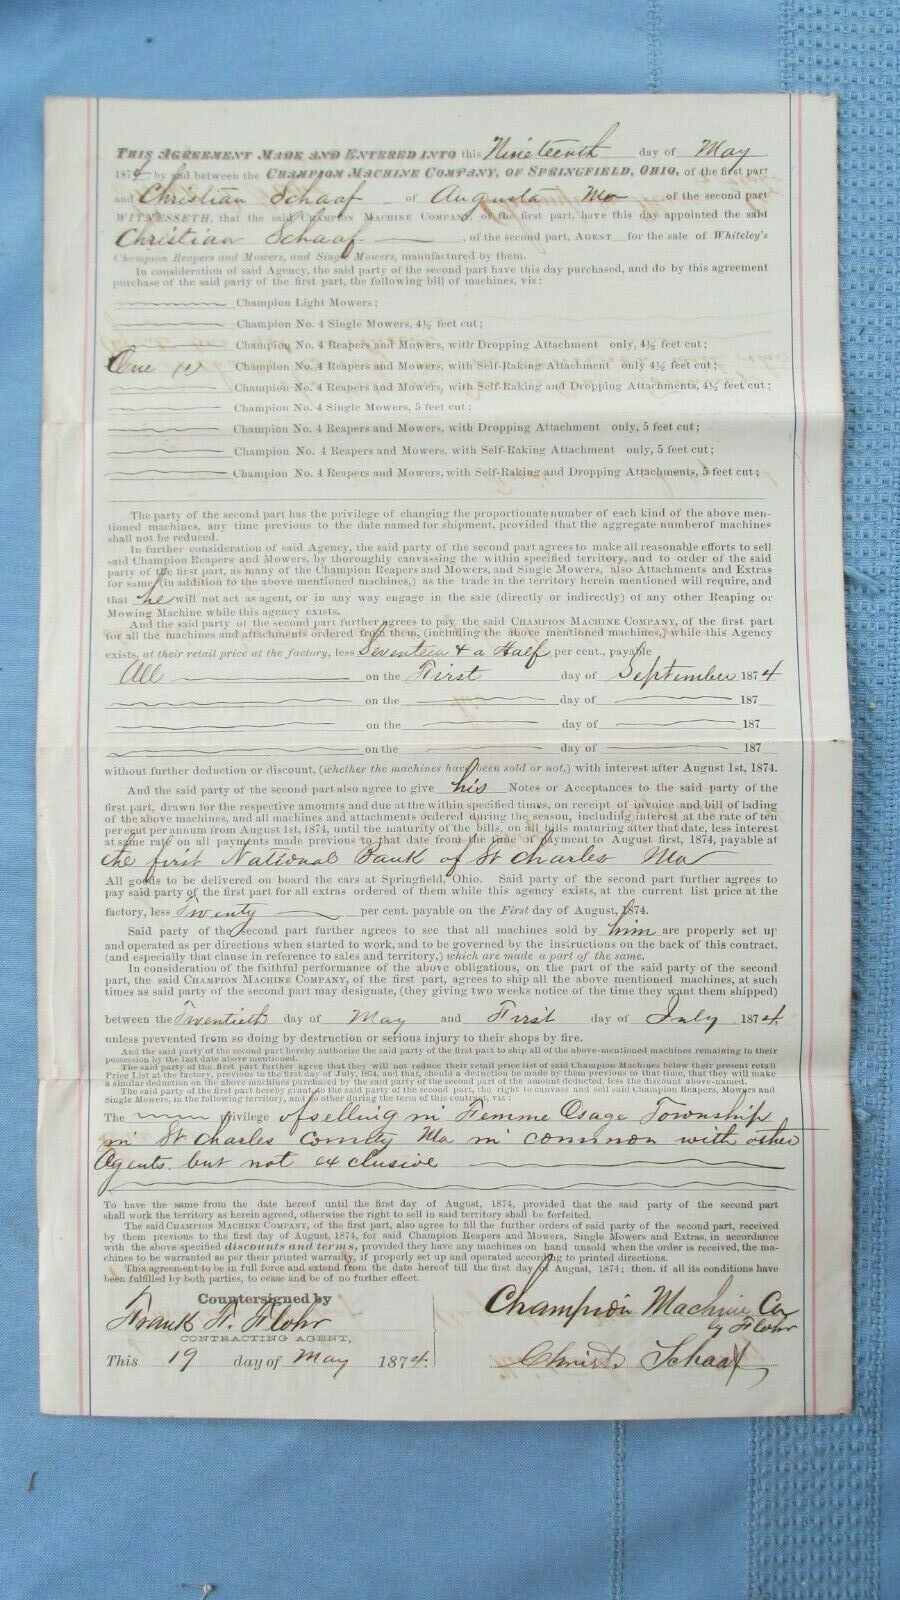 THIS AGREEMENT MADE AND ENTERED INTO this Nineteenth day of May
1874 by and between the CHAMPION MACHINE COMPANY, OF SPRINGFIELD, OHIO, of the first part
and Christian Schaaf of Augusta Mo of the second part
WITNESSETH, that the said CHAMPION MACHINE COMPANY, of the first part, have this day appointed the said
Christian Schaaf , of the second part, AGENT for the sale of Whiteley's
Champion Reapers and Mowers, and Single Mowers, manufactured by them.
In consideration of said Agency, the said party of the second part have this day purchased, and do by this agreement
purchase of the said party of the first part, the following bill of machines, viz:
Champion Light Mowers;
Champion No. 4 Single Mowers, 4½ feet cut;
Champion No. 4 Reapers and Mowers, with Dropping Attachment only, 4½ feet cut;
One (1) Champion No. 4 Reapers and Mowers, with Self-Raking Attachment only 4½ feet cut;
Champion No. 4 Reapers and Mowers, with Self-Raking and Dropping Attachments, 4½ feet cut;
Champion No. 4 Single Mowers, 5 feet cut;
Champion No. 4 Reapers and Mowers, with Dropping Attachment only, 5 feet cut;
Champion No. 4 Reapers and Mowers, with Self-Raking Attachment only, 5 feet cut;
Champion No. 4 Reapers and Mowers, with Self-Raking and Dropping Attachments, 5 feet cut;
The party of the second part has the privilege of changing the proportionate number of each kind of the above men-
tioned machines, any time previous to the date named for shipment, provided that the aggregate number of machines
shall not be reduced.
In further consideration of said Agency, the said party of the second part agrees to make all reasonable efforts to sell
said Champion Reapers and Mowers, by thoroughly canvassing the within specified territory, and to order of the said
party of the first part, as many of the Champion Reapers and Mowers, and Single Mowers, also Attachments and Extras
for same (in addition to the above mentioned machines,) as the trade in the territory herein mentioned will require, and
that he will not act as agent, or in any way engage in the sale (directly or indirectly) of any other Reaping or
Mowing Machine while this agency exists.
And the said party of the second part further agrees to pay the said CHAMPION MACHINE COMPANY, of the first part
for all the machines and attachments ordered from them, (including the above mentioned machines,) while this Agency
exists, at their retail price at the factory, less Seventeen & a Half per cent., payable
All on the First day of September 1874
on the day of 187
on the day of 187
on the day of 187
without further deduction or discount, (whether the machines have been sold or not,) with interest after August 1st, 1874.
And the said party of the second part also agree to give his Notes or Acceptances to the said party of the
first part, drawn for the respective amounts and due at the within specified times, on receipt of invoice and bill of lading
of the above machines, and all machines and attachments ordered during the season, including interest at the rate of ten
per cent per annum from August 1st, 1874, until the maturity of the bills, on all bills maturing after that date, less interest
at same rate on all payments made previous to that date from the time of payment to August first, 1874, payable at
the first National Bank of St Charles Mo
All goods to be delivered on board the cars at Springfield, Ohio. Said party of the second part further agrees to
pay said party of the first part for all extras ordered of them while this agency exists, at the current list price at the
factory, less Twenty per cent. payable on the First day of August, 1874.
Said party of the second part further agrees to see that all machines sold by him are properly set up
and operated as per directions when started to work, and to be governed by the instructions on the back of this contract.
(and especially that clause in reference to sales and territory,) which are made a part of the same.
In consideration of the faithful performance of the above obligations, on the part of the said party of the second
part, the said CHAMPION MACHINE COMPANY, of the first part, agrees to ship all the above mentioned machines, at such
times as said party of the second part may designate, (they giving two weeks notice of the time they want them shipped)
between the Twentieth day of May and First day of July 1874.
unless prevented from so doing by destruction or serious injury to their shops by fire.
And the said party of the second part hereby authorize the said party of the first part to ship all of the above-mentioned machines remaining in their
possession by the last date above mentioned.
The said party of the first part further agree that they will not reduce their retail price list of said Champion Machines below their present retail
Price List at the factory, previous to the first day of July, 1874, and that, should a deduction be made by them previous to that date, that they will make
a similar deduction on the above machines purchased by the said party of the second part of the amount deducted, less the discount above-named.
The said party of the first part hereby grant to the said party of the second part, the right to canvass and sell said Champion Reapers, Mowers and
Single Mowers, in the following territory, and no other during the term of this contract, viz:
The privilege of selling in Femme Osage Township
in St Charles County Mo in common with other
Agents but not exclusive
To have the same from the date hereof until the first day of August, 1874, provided that the said party of the second part
shall work the territory as herein agreed, otherwise the right to sell in said territory shall be forfeited.
The said CHAMPION MACHINE COMPANY, of the first part, also agree to fill the further orders of said party of the second part, received
by them previous to the first day of August, 1874, for said Champion Reapers and Mowers, Single Mowers and Extras, in accordance
with the above specified discounts and terms, provided they have any machines on hand unsold when the order is received, the ma-
chines to be warranted as per their printed warranty, if properly set up and operated according to printed directions.
This agreement to be in full force and extend from the date hereof till the first day of August, 1874; then, if all its conditions have
been fulfilled by both parties, to cease and be of no further effect.
Countersigned by
Frank F. Flohr
CONTRACTING AGENT,
This 19 day of May 1874.
Champion Machine Co
by Flohr
Christ. Schaaf